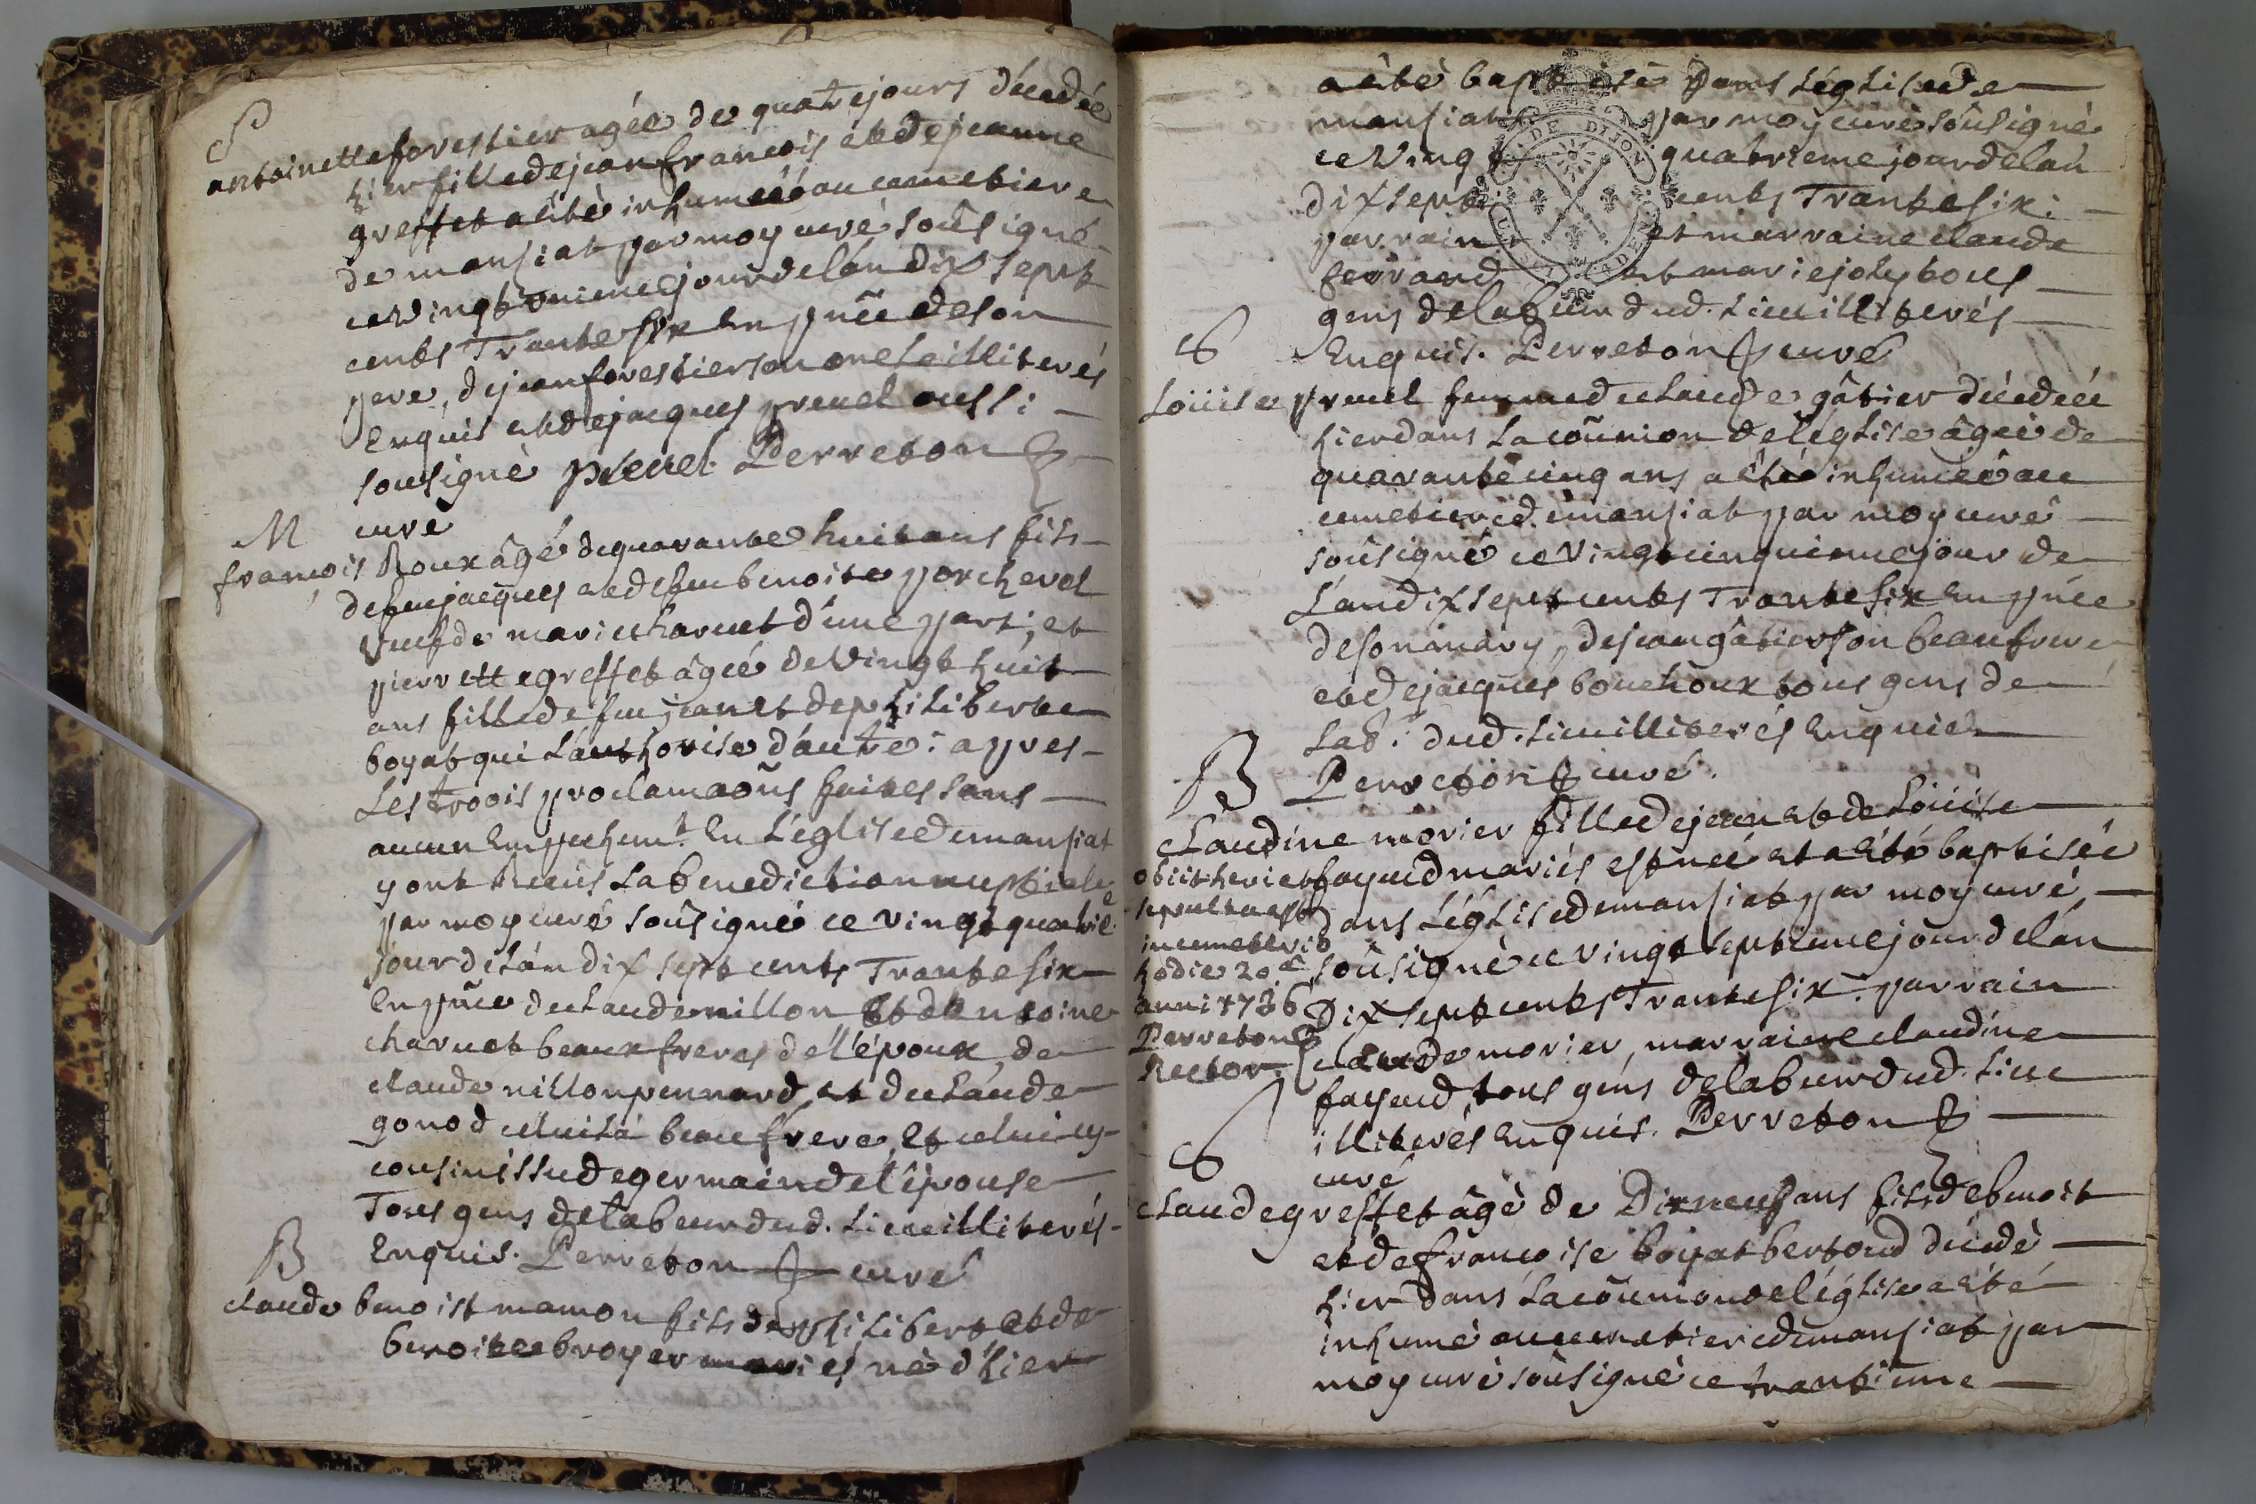 S
antoinette forestier agée de quatre jours décedée
hier fille de jean françois et de jeanne
greffet a êté inhumée au cemetiere
de mansiat par moy curé soûsigné
ce vingt onieme jour de lán dix sept
cents Trante six en pñce de son
pere, de jean forestier son oncle illiterés
Enquis et de jacques preuel aussi
sousigné preuel. Perreton
curé
M
françois Roux âgé de quarante huit ans fils
de feu jacques et de feu benoite porcheret
veuf de marie charuet d'une part, et
pierrette greffet âgée de vingt huit
ans fille de feu jean et de philiberte
boyat qui l'authorise d'autre: apres
Les troois proclamaoñs faites sans
aucun Empechemt. En L'églisedemansiat
y ont Receus La benediction nuptiale
par moy curé soûsigné ce vingt quatrie
jour de lán dix sept cents Trante six
En pñce de claude nillon et dantoine
charuet beaux freres de l'époux, de
claude nillon pennard et de claude
gonod celui la beau frere, et celui cy
cousin issu de germain de l'épouse
Tous gens de labeur dud. Lieu illiterés
Enquis. Perreton curé
B
claude benoist mamon fils de philibert et de
benoite broyer mariés né d'hier
a êté baptisé dans L'église de
mansiat par moy curé soûsigné
ce Vingt quatrieme jour de lán
dix sept cents Trante six:
parrain et marraine claude
ferrand et marie joly tous
gens de labeur dud. Lieu illiterés
Enquis. Perreton curé
S
Loüise preuel femme de claude gâtier décedée
hier dans La coñunion de l'eglise âgée de
quarante cinq ans a êté inhumée au
cemetiere de mansiat par moy curé
soûsigné ce Vingt cinquieme jour de
L'an dix sept cents Trante six En pñce
de son mary, de jean gâtier son beau frere
et de jacques bouchoux tous gens de
Lab. dud. Lieu illiterés Enquis
Perreton curé.
B
claudine morier fille de jean et de Loüise
fayeud mariés est née et a êté baptisée
dans L'église de mansiat par moy curé
soûsigné ce vingt septieme jour de lán
Dix sept cents Trante six. parrain
claude morier, marraine claudine
fayeud tous gens de labeur dud. Lieu
illiterés Enquis. Perreton
curé
obiit heri et
sepulta est
in cemeterio
hodie 20a
anni 1736
Perreton
Rector
S
claude greffet âgé de Dix neuf ans fils de benoit
et de françoise boyat bertoud décedé
hier dans La coñumon de l'église a êté
inhumé au cemetiere de mansiat par
moy curé soûsigné ce trantieme
DE DIJON